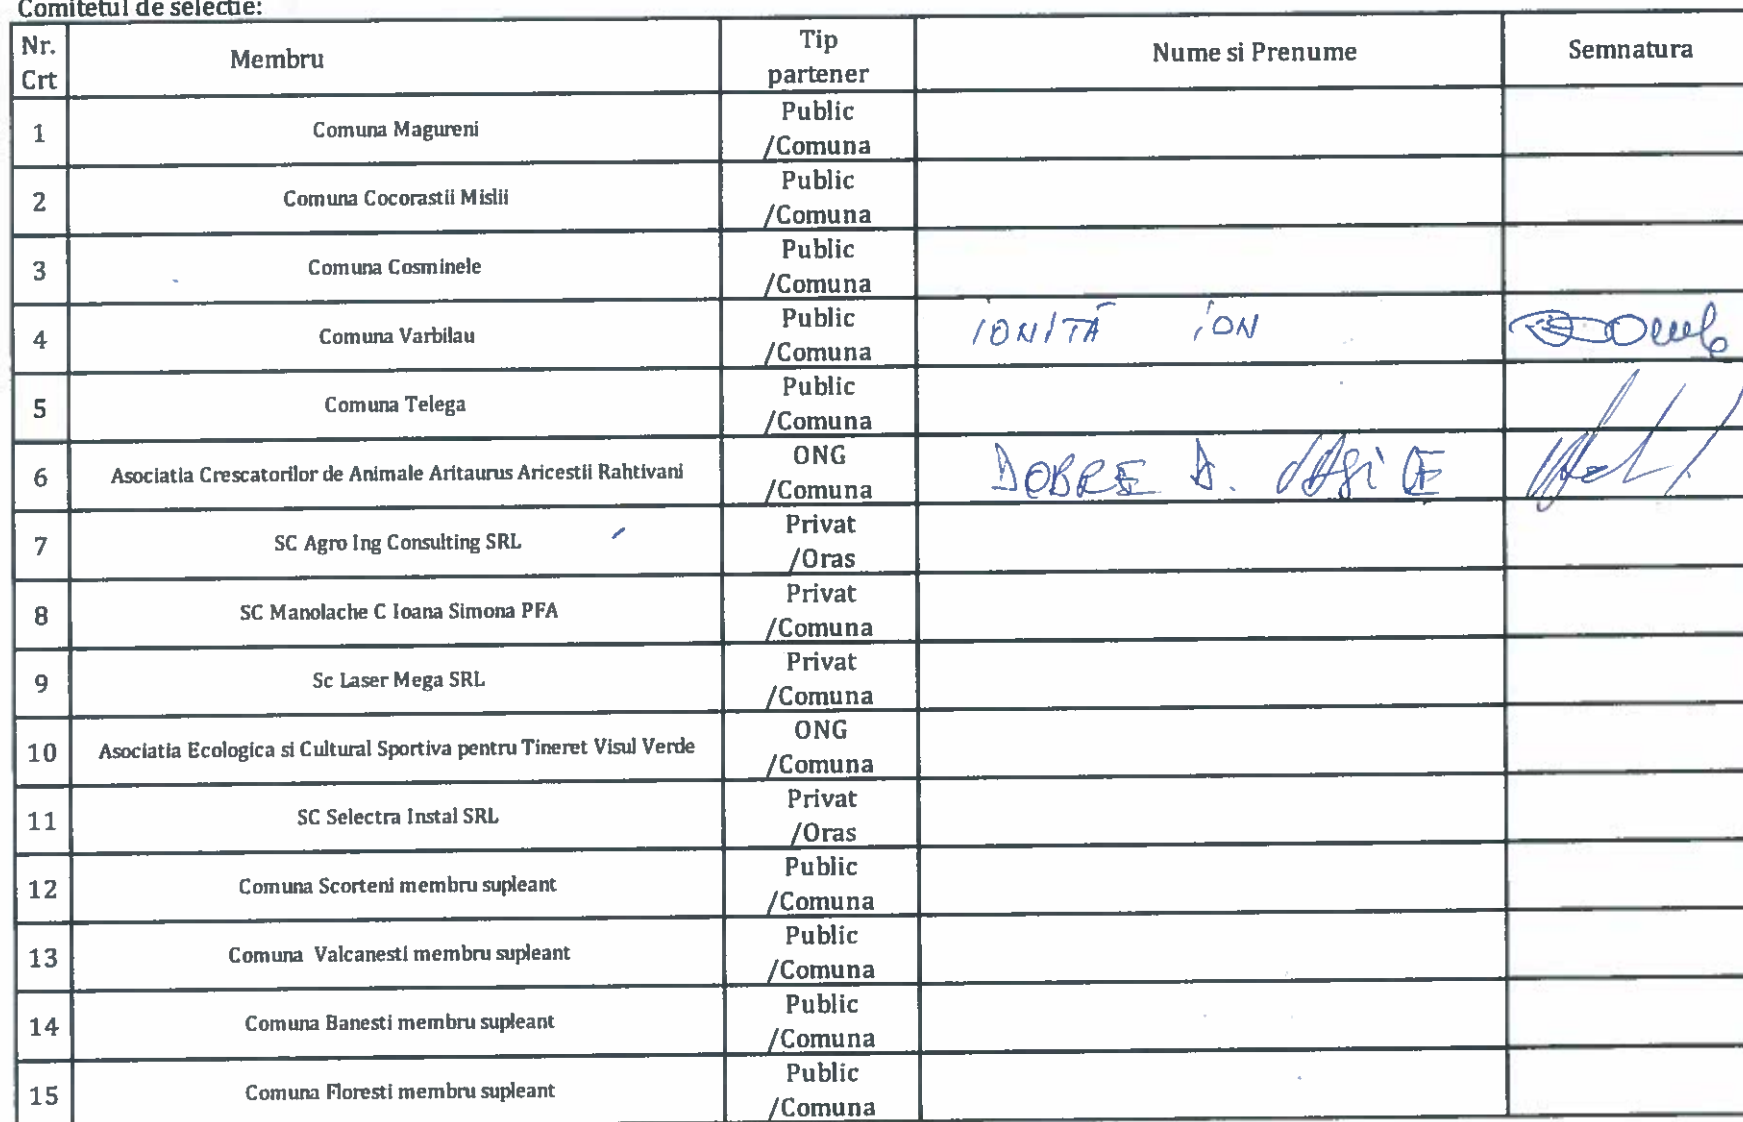 Comitetul de selectie:
Nr. Crt Membru Tip partener Nume si Prenume Semnatura
1 Comuna Magureni Public /Comuna
2 Comuna Cocorastii Mislii Public /Comuna
3 Comuna Cosminele Public /Comuna
4 Comuna Varbilau Public /Comuna IONITĂ ION
5 Comuna Telega Public /Comuna
6 Asociatia Crescatorilor de Animale Aritaurus Aricestii Rahtivani ONG /Comuna DOBRE D.
7 SC Agro Ing Consulting SRL Privat /Oras
8 SC Manolache C Ioana Simona PFA Privat /Comuna
9 Sc Laser Mega SRL Privat /Comuna
10 Asociatia Ecologica si Cultural Sportiva pentru Tineret Visul Verde ONG /Comuna
11 SC Selectra Instal SRL Privat /Oras
12 Comuna Scorteni membru supleant Public /Comuna
13 Comuna Valcanesti membru supleant Public /Comuna
14 Comuna Banesti membru supleant Public /Comuna
15 Comuna Floresti membru supleant Public /Comuna